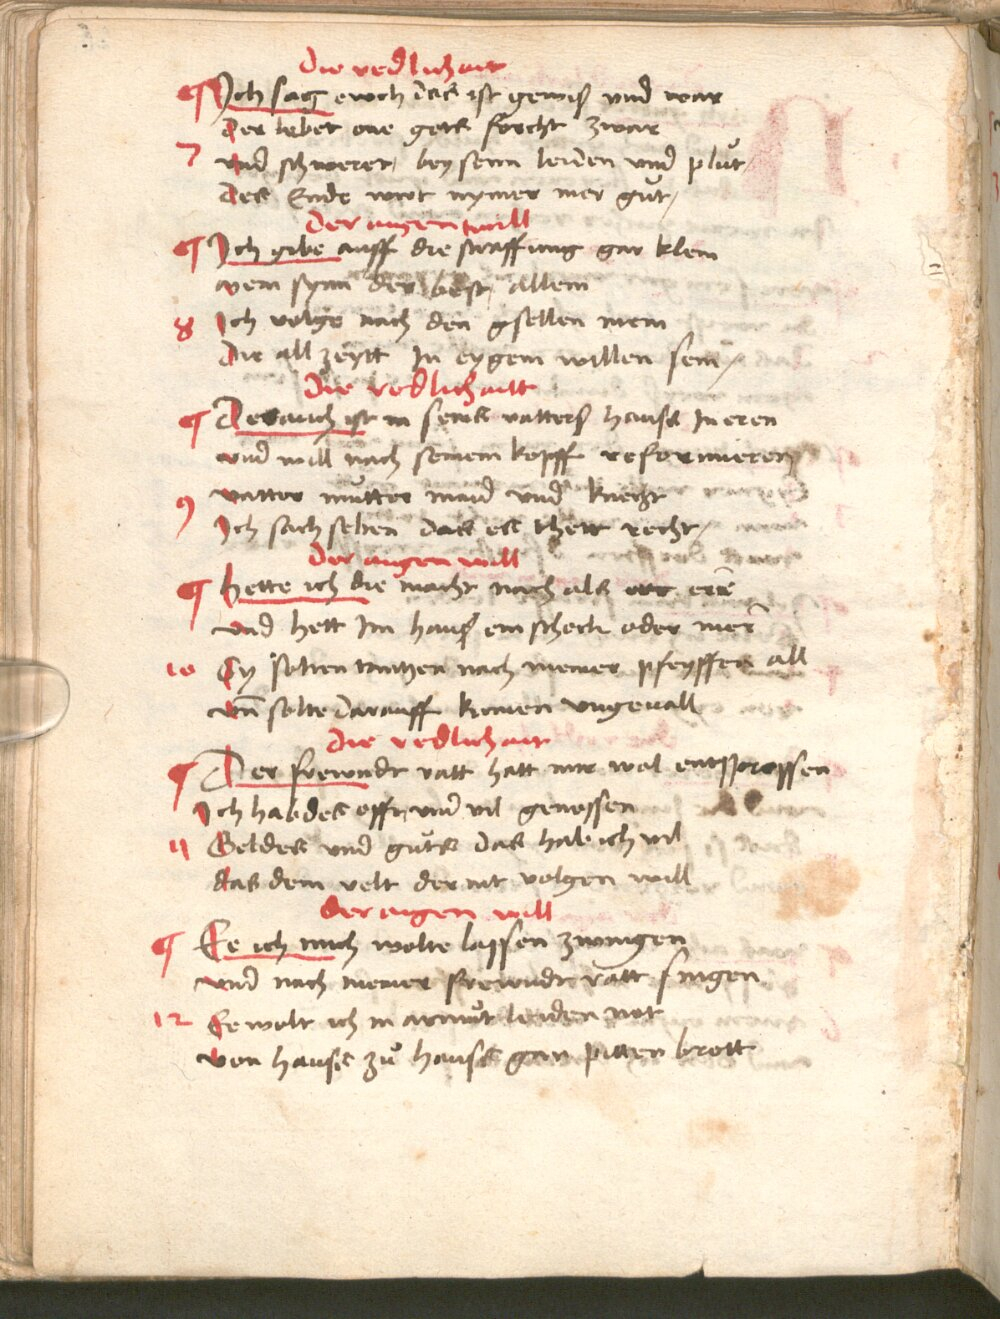 Die redlichait
¶ Ich sag ewch das ist gewiß und war
Der lebet one gots forcht zwar
7 und schweret / bey seim leiden und plůt /
Des Ende wirt nymer mer gůt /
Der aigen will
¶ Ich gibe auff die straffung gar klein
mein synn der best / allein
8 Ich volge nach den gsellen mein
Die all zeytt In eygem willen sein /
Die redlichaitt
¶ Der auch ist in seins vatters hauß In eren
und will nach seinem kopff reformieren
9 vatter mutter maid und knecht
Ich sach selten das es thett recht /
Der aigen will
¶ Hette ich die macht noch als vor ee
und hett Im hauß ein schock oder mer
10 Sy solten tantzen nach meiner pfeyffen all
und solte darauff kumen ungevall
Die redlichait
¶ Der frewndt ratt hatt mir wol entsprossen
Ich hab des offt und vil genossen
11 Geldes und gůts das hab ich vil
das dem velt der nit volgen will
der aigen will
¶ Ee ich mich wolte lassen zwingen
und nach meiner frewndt ratt singen
12 Ee wolt ich in armůt leiden not
von hauß zů hauß gan pitten brott